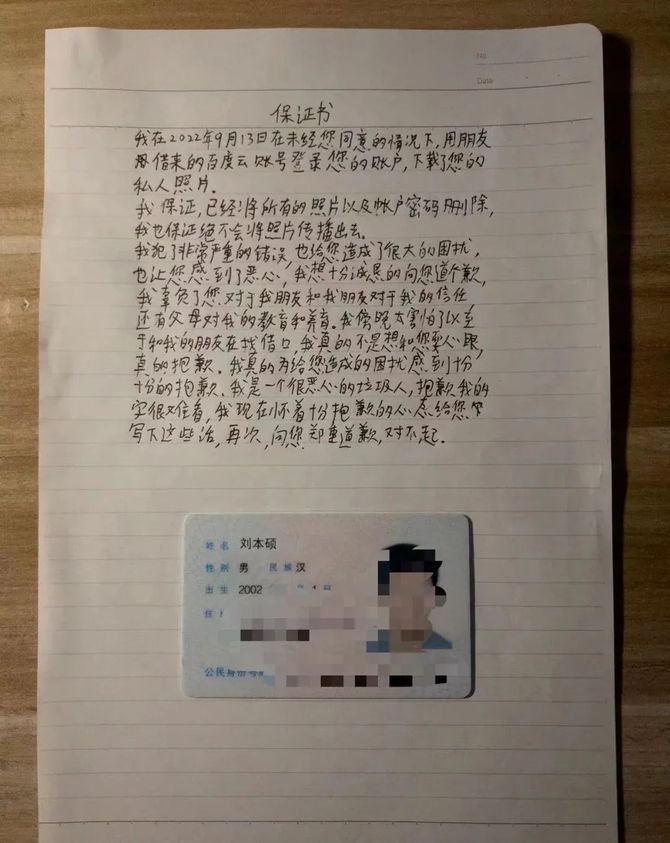 No
Date
保证书
我在2022年9月13日在未经您同意的情况下,用朋友
借来的百度云账号登录您的账户,下载了您的
私人照片.
我保证,已经将所有的照片以及帐户密码删除,
我也保证绝不会将照片传播出去.
我犯了非常严重的错误,也给您造成了很大的困扰,
也让您感到了恶心,我想十分诚恳的向您道个歉,
我辜负了您对于我朋友和我朋友对于我的信任,
还有父母对我的教育和养育.我傍晚太害怕了以至
于和我的朋友在找借口,我真的不是想和您耍心眼,
真的抱歉.我真的为给您造成的困扰感到十分
十分的抱歉.我是一个很恶心的垃圾人,抱歉我的
字很难看,我现在怀着十分抱歉的心态给您
写下这些话,再次,向您郑重道歉,对不起.
姓名 刘本硕
性别 男 民族 汉
出生 2002
住
公民身份号